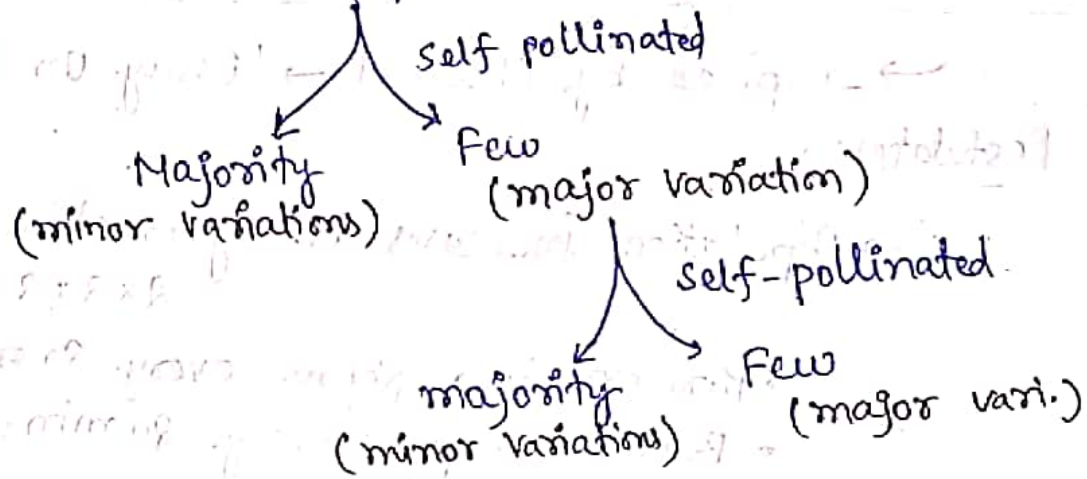 self pollinated
Majority
(minor variations)
Few
(major variation)
self-pollinated
majority
(minor variations)
Few
(major vari.)